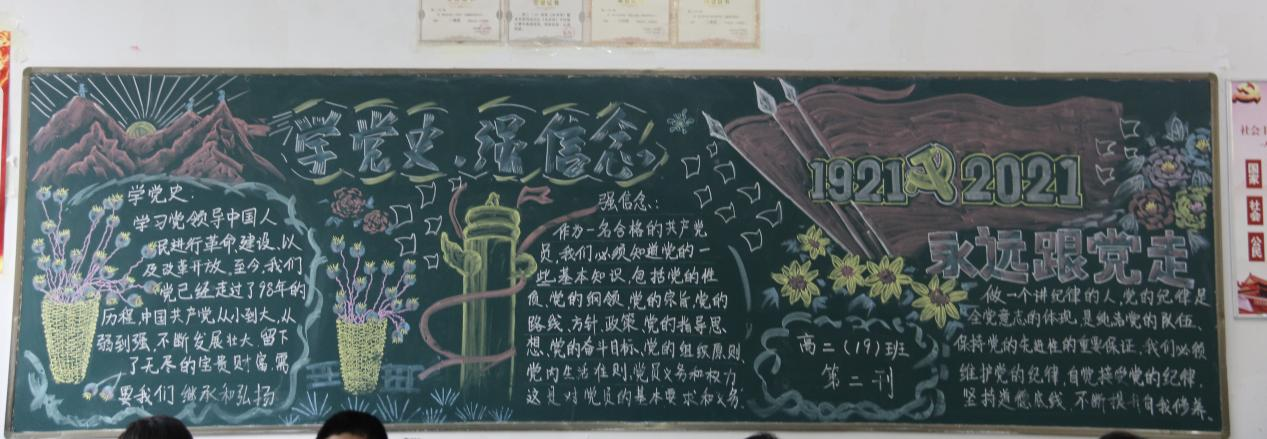 学党史、强信念
学党史.
学习党领导中国人
民进行革命建设、以
及改革开放、至今,我们
党已经走过了98年的
历程,中国共产党从小到大,从
弱到强,不断发展壮大,留下
了无尽的宝贵财富,需
要我们继承和弘扬
强信念:
作为一名合格的共产党
员,我们必须知道党的一
些基本知识,包括党的性
质,党的纲领,党的宗旨,党的
路线、方针、政策,党的指导思
想,党的奋斗目标、党的组织原则、
党内生活准则,党员义务和权力
这是对党员的基本要求和义务.
1921 2021
永远跟党走
高二(19)班
第二刊
做一个讲纪律的人,党的纪律是
全党意志的体现,是纯洁党的队伍、
保持党的先进性的重要保证,我们必须
维护党的纪律,自觉接受党的纪律,
坚持道德底线,不断提升自我修养、
国家
社会
公民